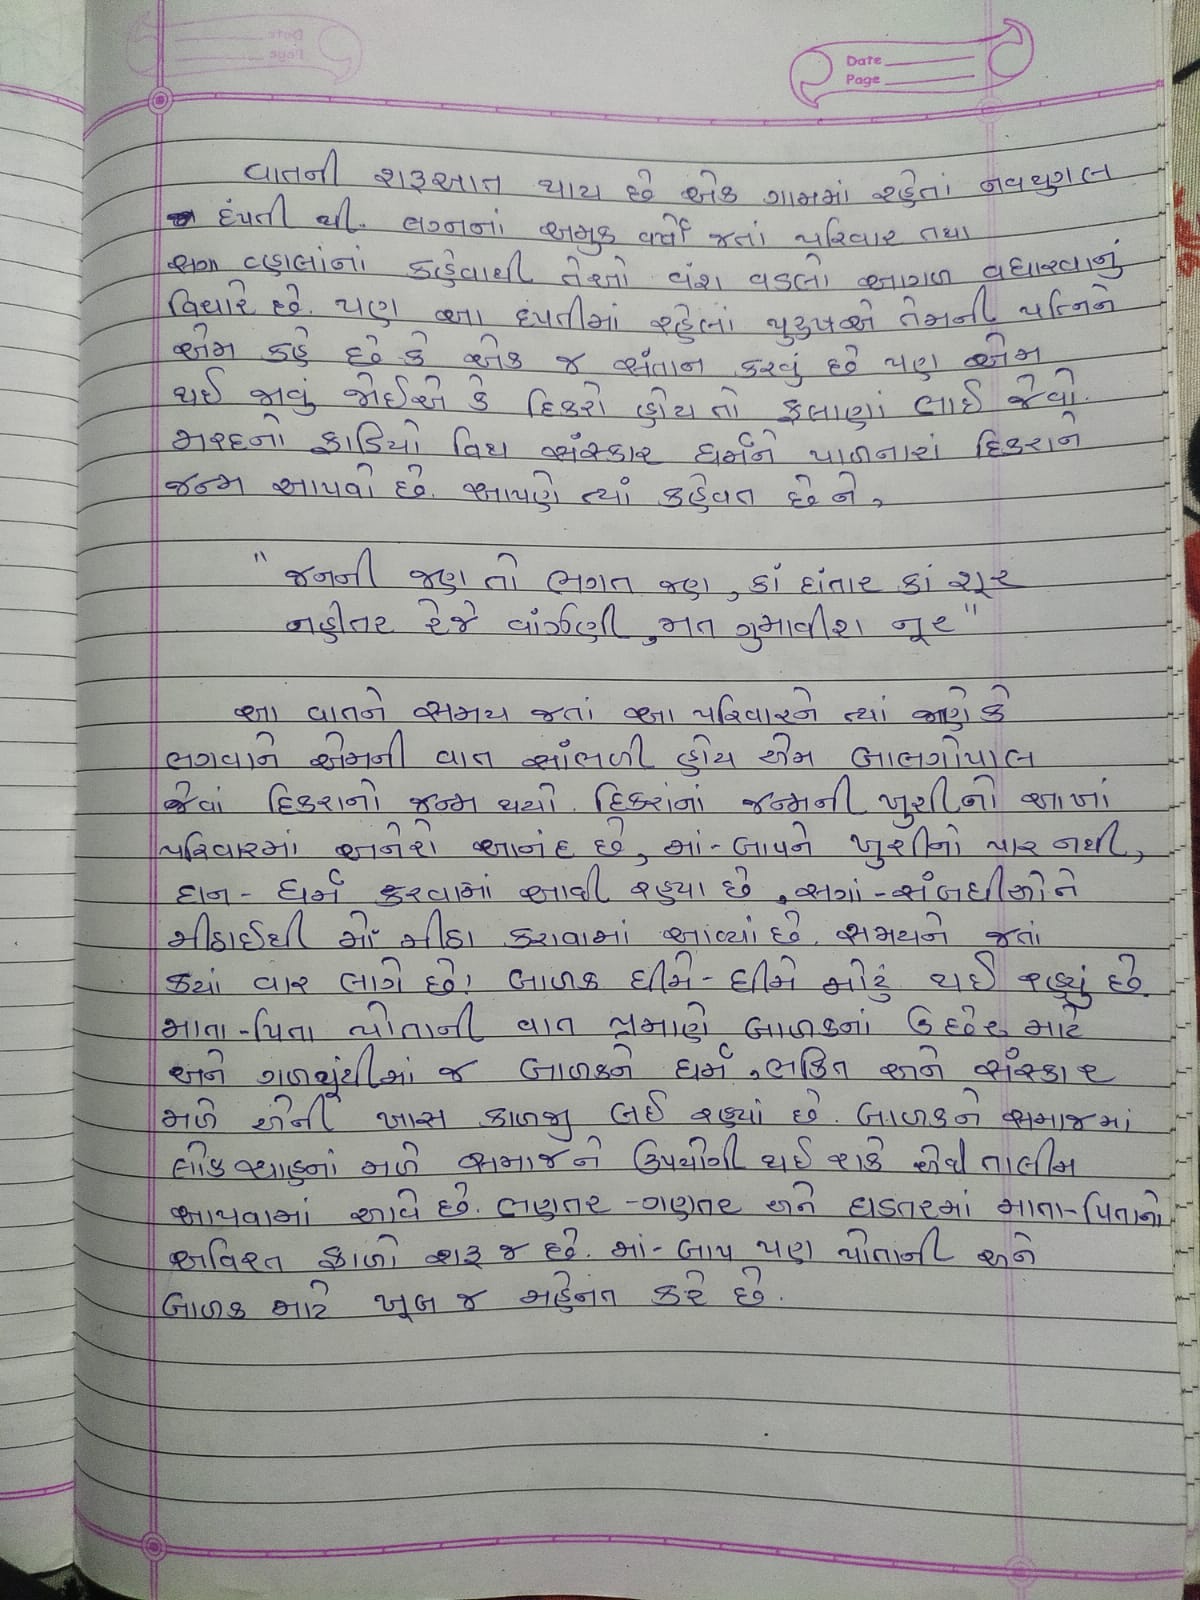 Date
Page
વાતની શરૂઆત થાય છે એક ગામમાં રહેતાં નવયુગલ
દંપતી થી. લગ્નનાં અમુક વર્ષો જતાં પરિવાર તથા
સગા વ્હાલાંનાં કહેવાથી તેઓ વંશ વડલો આગળ વધારવાનું
વિચારે છે. પણ આ દંપતીમાં રહેલાં પુરુષએ તેમની પત્નિને
એમ કહે છે કે એક જ સંતાન કરવું છે પણ એમ
થઈ જાવું જોઈએ કે દિકરો હોય તો ફલાણાં ભાઈ જેવો.
મરદનો ફાડિયો વિધ સંસ્કાર ધર્મને પાળનારાં દિકરાને
જન્મ આપવો છે. આપણે ત્યાં કહેવત છે ને,
"જનની જણ તો ભગત જણ, કાં દાંતાર કાં શૂર
નહીતર રેજે વાંઝણી, મત ગુમાવીશ નૂર"
આ વાતને સમય જતાં આ પરિવારને ત્યાં જાણે કે
ભગવાને એમની વાત સાંભળી હોય એમ બાલગોપાલ
જેવાં દિકરાનો જન્મ થયો. દિકરાંનાં જન્મની ખુશીનો આખાં
પરિવારમાં અનેરો આનંદ છે, માં-બાપને ખુશીનો પાર નથી,
દાન-ધર્મ કરવામાં આવી રહ્યા છે, સગાં-સંબધીઓને
મીઠાઈથી મોં મીઠા કરાવામાં આવ્યાં છે. સમયને જતાં
ક્યાં વાર લાગે છે! બાળક ધીમે-ધીમે મોટું થઈ રહ્યું છે.
માતા-પિતા પોતાની વાત પ્રમાણે બાળકનાં ઉછેર માટે
અને ગળથૂંથીમાં જ બાળકને ધર્મ, ભકિત અને સંસ્કાર
મળે એની ખાસ કાળજી લઈ રહ્યાં છે. બાળકને સમાજમાં
લોક ચાહનાં મળે સમાજને ઉપયોગી થઈ શકે એવી તાલીમ
આપવામાં આવે છે. ભણતર-ગણતર અને ઘડતરમાં માતા-પિતાનો
અવિરત ફાળો શરૂ જ છે. માં-બાપ પણ પોતાની અને
બાળક માટે ખૂબ જ મહેનત કરે છે.